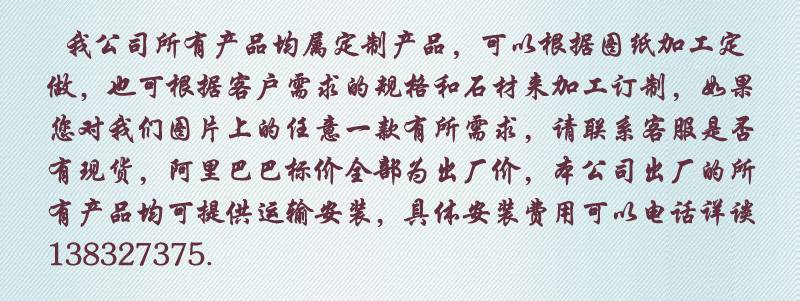 我公司所有产品均属定制产品，可以根据图纸加工定
做，也可根据客户需求的规格和石材来加工订制，如果
您对我们图片上的任意一款有所需求，请联系客服是否
有现货，阿里巴巴标价全部为出厂价，本公司出厂的所
有产品均可提供运输安装，具体安装费用可以电话详谈
138327375.